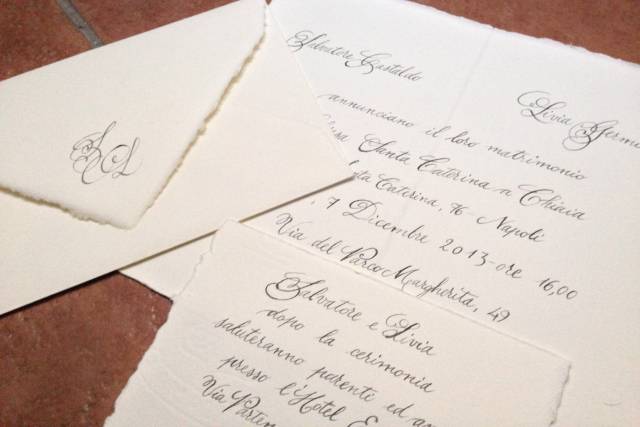 SL
Salvatore Castaldo
Livia
annunciano il loro matrimonio
Santa Caterina a Chiaia
Caterina, 76 - Napoli
7 Dicembre 2013 - ore 16,00
Via del Parco Margherita, 49
Salvatore e Livia
dopo la cerimonia
saluteranno parenti ed
presso l'Hotel
Via